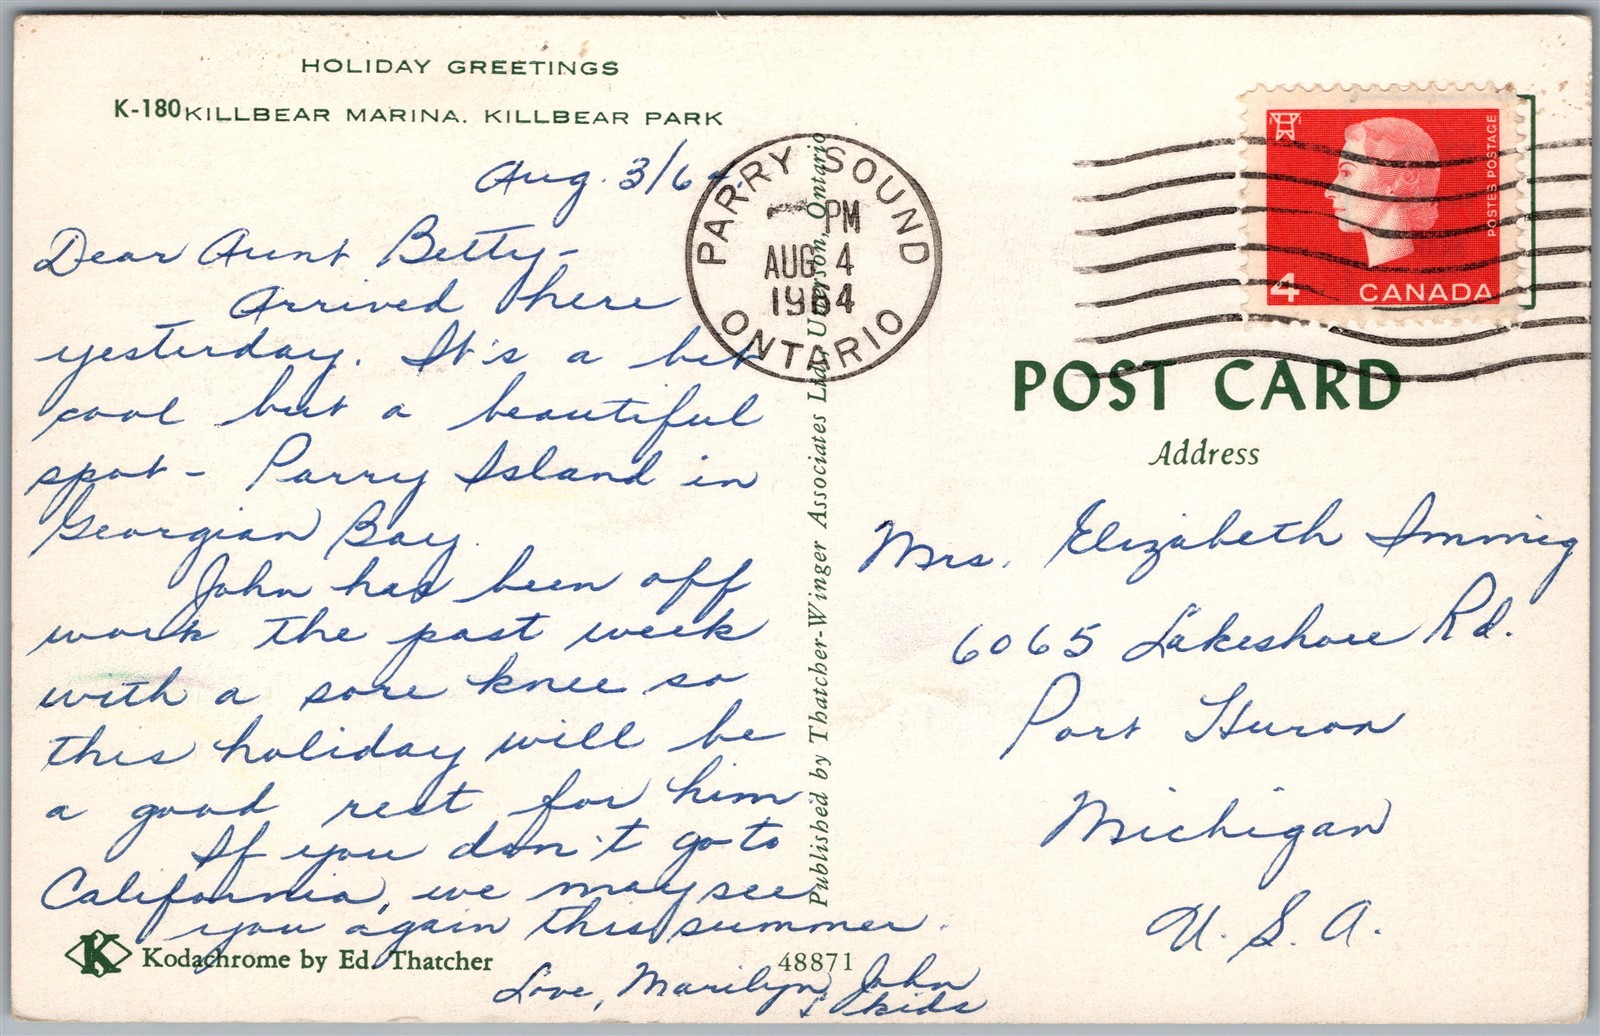 HOLIDAY GREETINGS
K-180 KILLBEAR MARINA. KILLBEAR PARK
Aug. 3/64.
Dear Aunt Betty-
Arrived here
yesterday. It's a bit
cool but a beautiful
spot - Parry Island in
Georgian Bay.
John has been off
work the past week
with a sore knee so
this holiday will be
a good rest for him
If you don't go to
California, we may see
you again this summer.
Love, Marilyn, John
& kids
K Kodachrome by Ed. Thatcher
48871
Published by Thatcher-Winger Associates Ltd., Utterson, Ontario
PARRY SOUND
PM
AUG 4
1964
ONTARIO
POSTES POSTAGE
4 CANADA
POST CARD
Address
Mrs. Elizabeth Immig
6065 Lakeshore Rd.
Port Huron
Michigan
U. S. A.